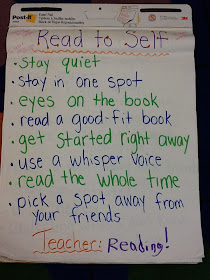 Post-it
Read to Self
• stay quiet
• stay in one spot
• eyes on the book
• read a good-fit book
• get started right away
• use a whisper voice
• read the whole time
• pick a spot away from
your friends
Teacher: Reading!